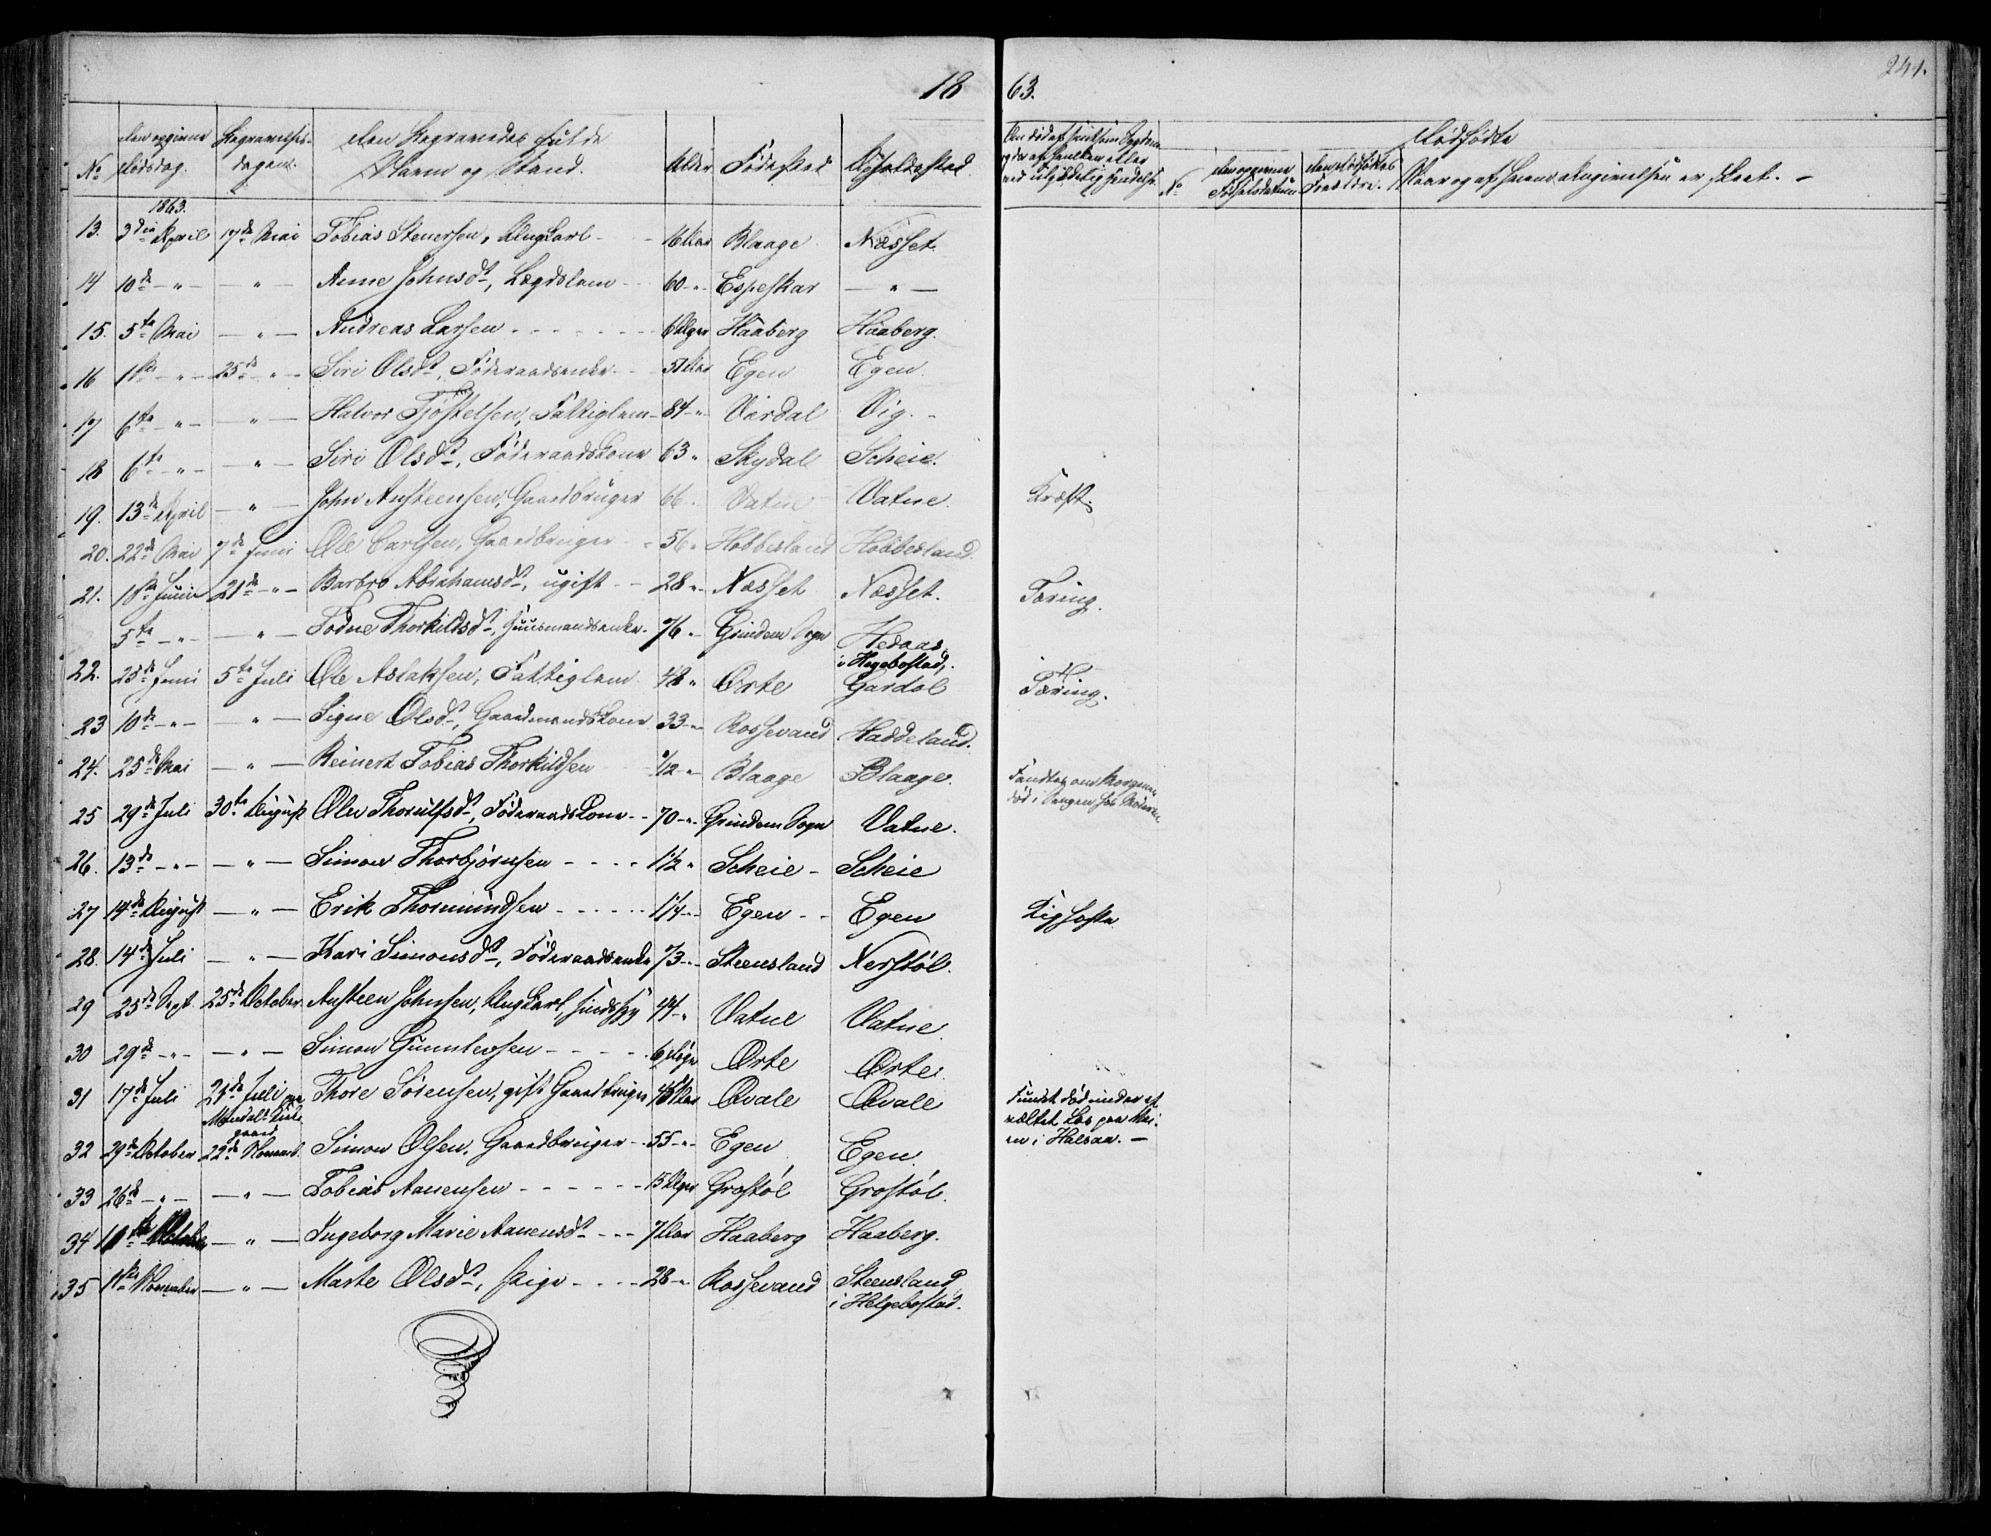 18 63.
241.
No Den opgivne Dødsdag. Begravelses-dagen. Den Begravedes fulde Navn og Stand. Alder Fødested Opholdsted. No Den opgivne Fødselsdatum Den Dødfødtes Forældre. Dødfødte Naar og af hvem Angivelsen er skeet. –
1863.
13. 3die April 17de Mai Tobias Stenersen, Ungkarl 16 Aar Blaage Næsset.
14 10de – " – – " – Anne Johnsdt, Lægdslem 60 " Espeskar – " –
15. 5te Mai – " – Andreas Larsen 6 Uger Haaberg Haaberg.
16 11te – " – 25de " – Siri Olsdt, Føderaadsenke 51 Aar Egen Egen.
17 6te – " – – " – Halvor Tjøstelsen, Fattiglem 84 " Vårdal Vig. –
18 6te – " – – " – Siri Olsdt, Føderaadskone 63 " Skydal Scheie.
19. 13de April – " – John Austeensen, Gaardbruger 66 " Vatne Vatne. Kræft.
20. 22de Mai 7de Juni Ole Carlsen, Gaardbruger 56 " Hobbesland Hobbesland.
21. 18de Juni 21de – " – Barbro Abrahamsdt, ugift 28 " Næsset Næsset. Tæring.
5te – " – – " – Todne Thorkildsdt, Huusmandsenke 76 " Grindem Sogn Hedaas, i Hegebostad,
22. 25de Juni 5te Juli Ole Aslaksen, Fattiglem 48 " Ørte Gardøl Tæring.
23 10de – " – – " – Signe Olsdt, Gaardmandskone 33 " Rossevand Haddeland.
24. 25de Mai – " – Reinert Tobias Thorkildsen 1/12 " Blaage Blaage. Fandtes om Morgenen død i Sengen hos Moderen
25 29de Juli 30te August Olen Thorulfsdt, Føderaadskone 70 " Grindem Sogn Vatne.
26. 13de – " – – " – Simon Thorbjørnsen 1 1/2 " Scheie – Scheie
27 14de August – " – Erik Thormundsen 1 1/4 " Egen – Egen Kighoste
28. 14de Juli – " – Kari Simonsdt, Føderaadsenke 73 " Steensland Nerstøl.
29 25de Sept 25de October Austeen Johnsen, Ungkarl, sindssyg 44 " Vatne Vatne.
30 29de – " – – " – Simon Gunnlevsen 6 Døgn Ørte Ørte.
31 17de Juli 21de Juli paa Mandals Kirkegaard Thore Sørensen, gift Gaardbruger 45 Aar Qvale Qvale Fundet død under et væltet Læs paa Veien i Halsaa. –
32 29de October 22de Novemb. Simon Olsen, Gaardbruger 55 " Egen Egen.
33 26de – " – – " – Tobias Aanensen 15 Uger Grostøl Grostøl.
34 10de October – " – Ingeborg Marie Aanensdt 7 Aar Haaberg Haaberg.
35 11te November – " – Marte Olsdt, Pige 28 " Rossevand Steensland, i Helgebostad.